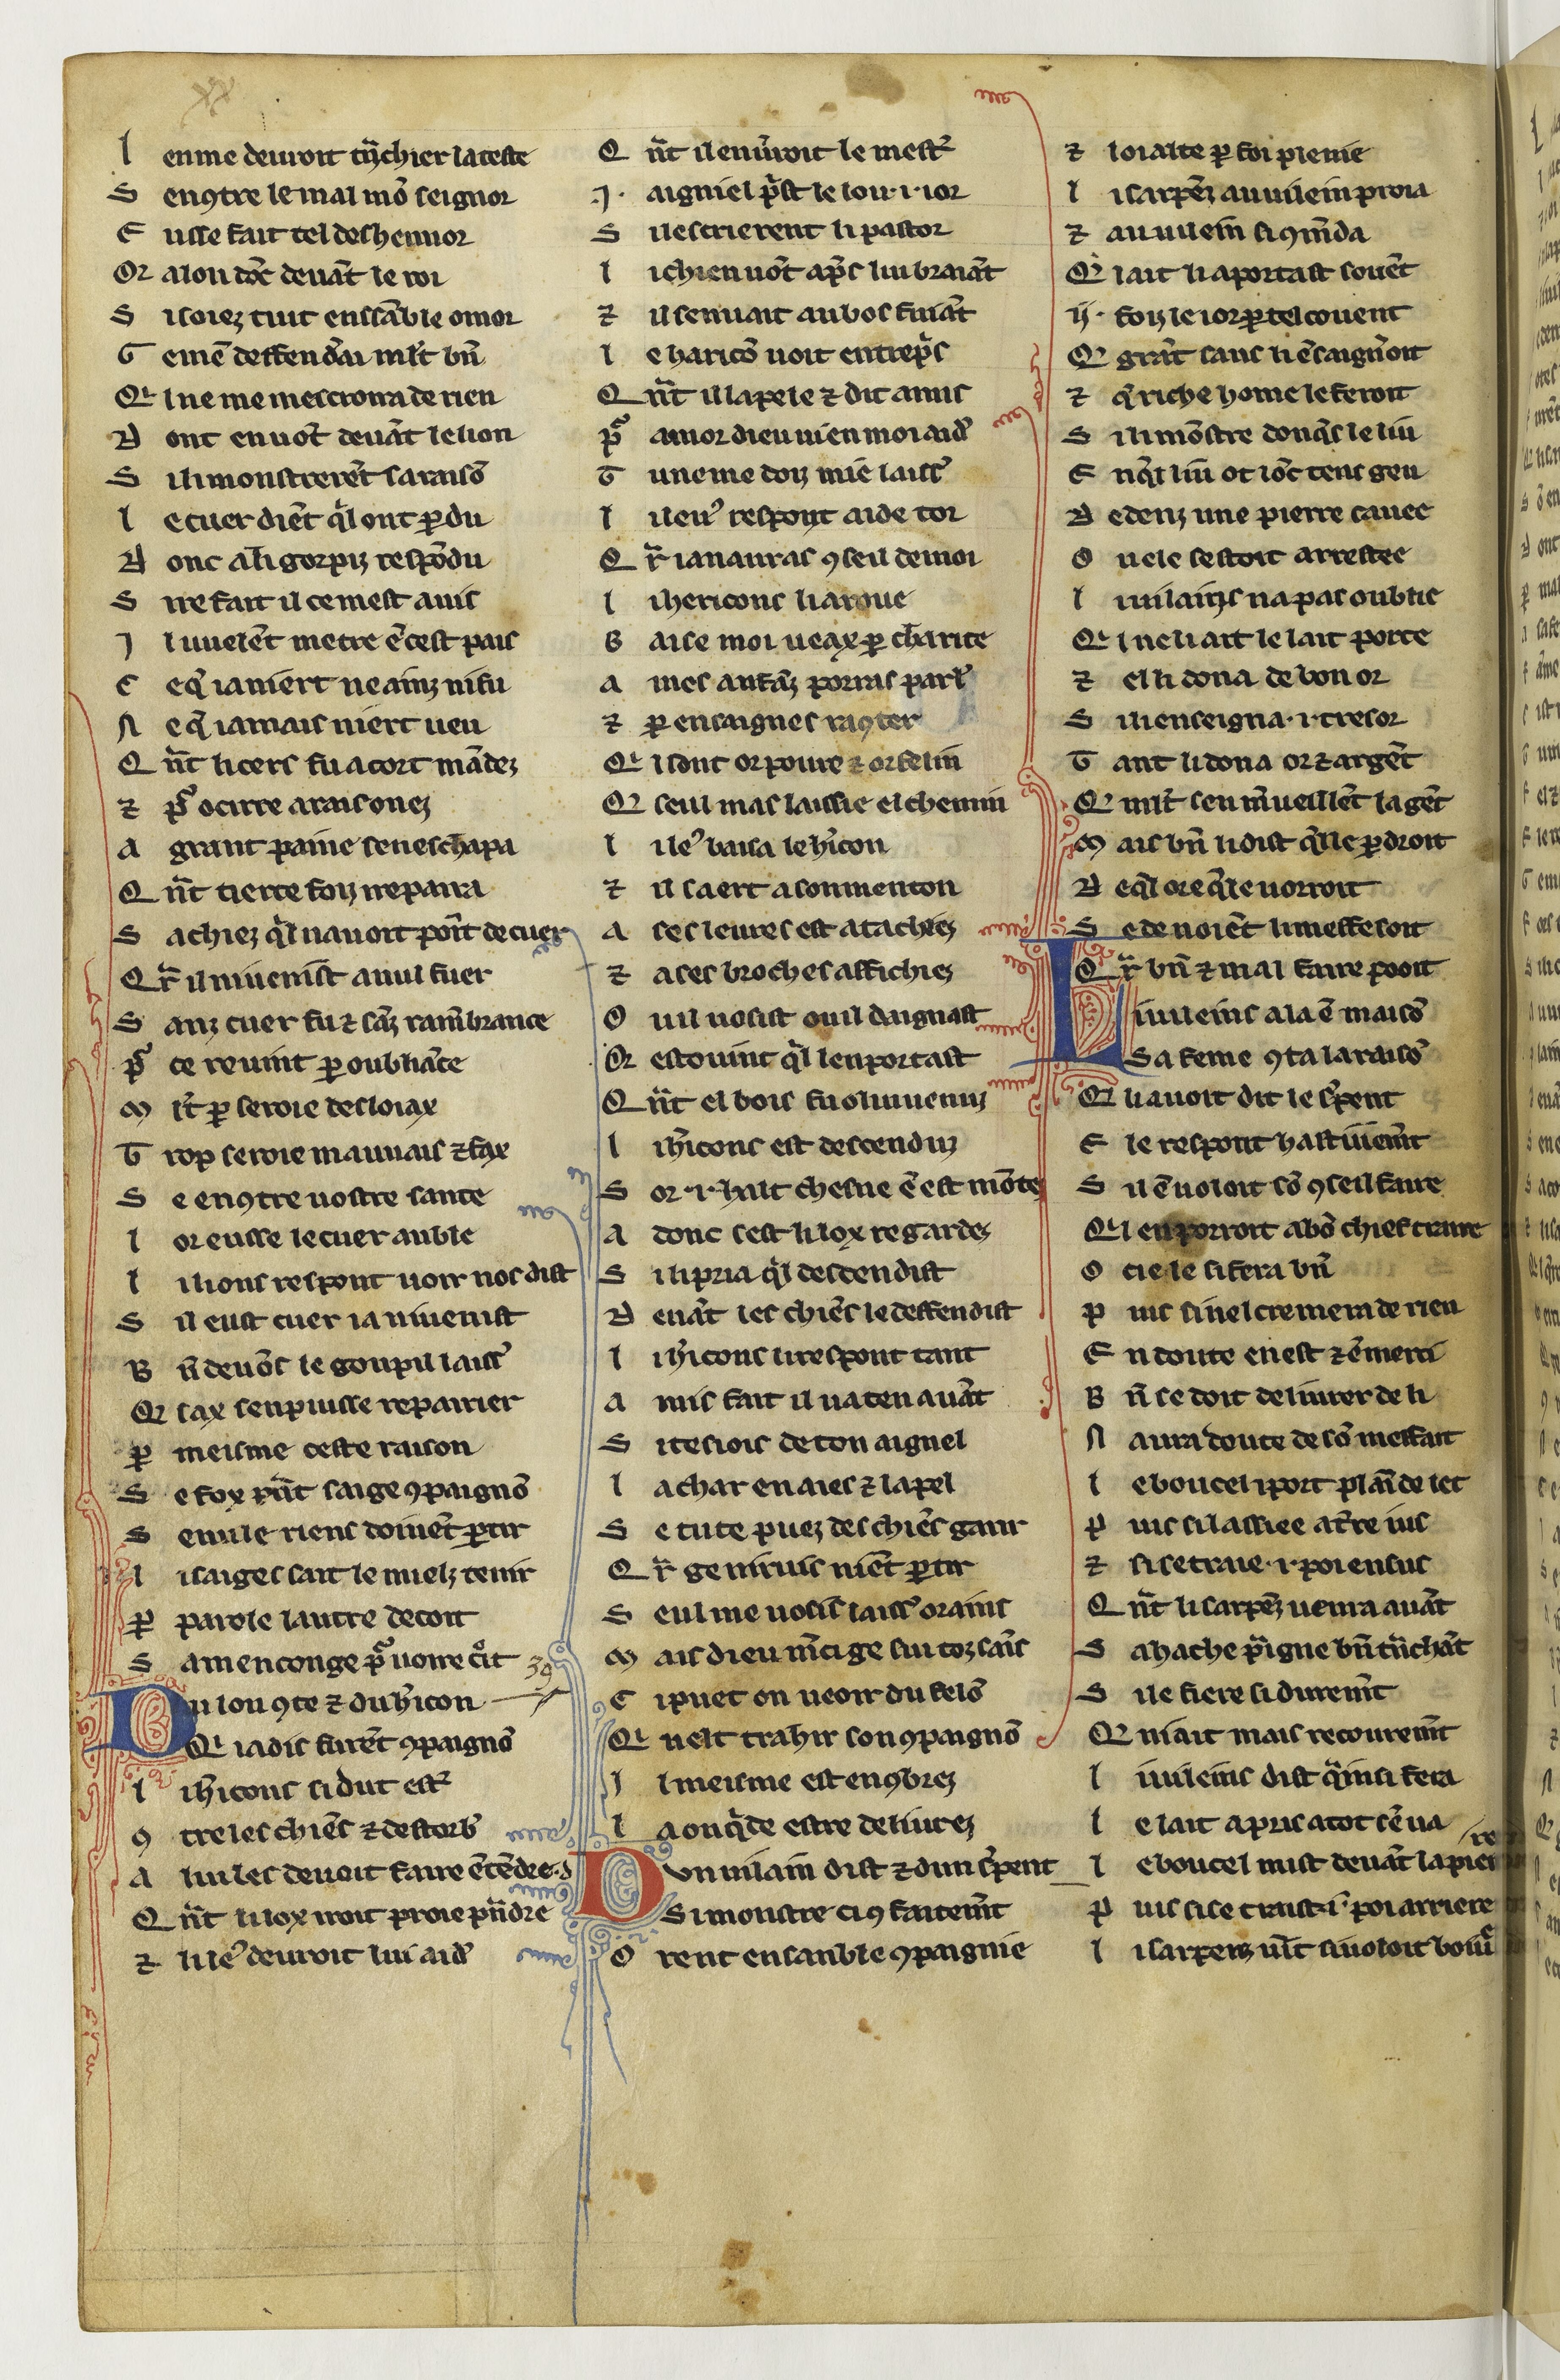 l enme deuroit tͣrchier la teste
S en ꝯtre le mal mō seignor
E usse fait tel deshennor
Or alon dōc deuāt le roi
S i soiez tuit ensāble o moi
G e mē deffendͬai ml̄t bn̄
Qͥl ne me mescroira de rien
D ont en uōt deuāt le lion
S i li monstrerēt sa raisō
L e cuer diēt qͥl ont ꝑdu
D onc a li gorpiz respōdu
S ire fait il ce mest auis
I l uuelēt metre ē cest pais
C e qͥ ia niert ne ainz ni fu
N e qͥ iamais niert ueu
Q n̄t li cers fu a cort māndez
⁊ pͬ ocirre araisonez
A grant paine sen eschapa
Q n̄t tierce foiz repaira
S achiez qͥl nauoit point de cuer
Q r̄ il ni uenist a nul fuer
S anz cuer fu ⁊ sāz ramb̄rance
Pͬ ce reuint ꝑ oubliāce
M l̄t ꝑ seroie desloiax
T rop seroie mauuais ⁊ fax
S e en ꝯtre uostre sante
L or eusse le cuer anble
L i lions respont uoir nos dist
S il eust cuer ia ni uenist
B n̄ deuōs le goupil laissͬ
Qͥ sax sen puisse repairier
P meisme ceste raison
S e fox prn̄t saige ꝯpaignō
S e nule riens doiuēt ꝑtir
L i saiges sait le mielz tenir
P parole lautre decoit
S a menconge pͬ uoire cͦit
Du lou ꝯte ⁊ du hͥicon
Qͥ iadis furēt ꝯpaignō
L i hͥicons si dut estͬ
Ꝯ tre les chiēs ⁊ destorbͬ
A lui les deuoit faire ētēdre
Q n̄t li lox iroit proie pn̄dre
⁊ li leͬ deuroit lui aidͬ
Q n̄t il enuͬroit le mestͬ
.I. aigniel pͥst le lou .i. ior
S i lescrierent li pastor
L i chien uōt apͬs lui braiāt
⁊ il senuait au bos fuiāt
L e haricō uoit entrepͥs
Q n̄t il lapele ⁊ dit amis
Pͬ amor dieu uien moi aidͬ
T u ne me doiz mie laissͬ
L i leuͬ respont aide toi
Q r̄ ia nauras ꝯseil de moi
L i hericons li a roue
B aise moi ueax ꝑ chͣrite
A mes anfāz porras parlͬ
⁊ ꝑ ensaignes raꝯter
Qͥ l sont or poure ⁊ orfelin
Qͥ seul mas laissie el chemin
L i leͬ baisa le hͥicon
⁊ il saert a son menton
A ses leures est atachiez
⁊ a ses broches affichiez
O u il uosist ou il daignast
Or estouint qͥl lenportast
Q n̄t el bois fu o lui uenuz
L i hͥicons est descenduz
S or .i. hͣult chesne ē est mōte
A donc sest li lox regardez
S i li pria qͥl descendist
D euāt les chiēs le deffendist
L i hͥicons li respont tant
A mis fait il ua ten auāt
S i te siois de ton aignel
L a char en aies ⁊ la pel
S e tu te puez des chiēs garir
Q r̄ ge ni ruis niēt ꝑtir
S eul me uosis laissͬ orains
M ais dieu mͬci ge sui toz sains
C i puet on ueoir du felō
Qͥ uelt trahir son ꝯpaignō
I l meisme est enꝯbrez
L a ou qͥde estre deliurez
Dvn uilain dist ⁊ dun sͬpent
Si monstre ci ꝯfaitemͬt
O rent ensanble ꝯpaignie
⁊ loialte ꝑ foi pleuie
L i sarpēz au uilein proia
⁊ au uilein si ꝯmͣda
Qͥ lait li aportast souēt
.ij. foiz le ior ꝑ tel couent
Qͥ grāt sans li ēsaignͬoit
⁊ qͥ riche home le feroit
S i li mōstre donqͥs le liu
E nqͥl liu ot iōc tens geu
D edenz une pierre cauee
O u ele sestoit arrestee
L i uilains na pas oublie
Qͥl ne li ait le lait porte
⁊ el li dona de bon or
S i li enseigna .i. tresor
T ant li dona or ⁊ argēt
Qͥ ml̄t sen mͬueillēt la gēt
M ais bn̄ li dist qͥl le ꝑdroit
D e qͥl ore qͥle uorroit
S e de noiēt li meffesoit
Q r̄ bn̄ ⁊ mal faire pooit
Li uileins ala ē maisō
Sa feme ꝯta la raisō
Qͥ li auoit dit le sͬpent
E le respont hastiuemͬt
S il ē uoloit sō ꝯseil faire
Qͥl en porroit a bō chief traire
O cie le si fera bn̄
P uis si nel cremera de rien
E n doute en est ⁊ ē merci
B n̄ se doit deliurer de li
N aura doute de sō meffait
L e boucel i port plāi de let
P uis si lassiee a tͬre ius
⁊ si se traie .i. poi ensus
Q n̄t li sarpēz uenra auāt
S a hache pͥigne bn̄ tͬnchāt
S i le fiere si duremͬt
Qͥ ni ait mais recouremͬt
L i uileins dist qͥinsi fera
L e lait a pris a tot sē ua
L e boucel mist deuāt la pier re
P uis si se traist .i. poi arriere
L i sarpenz uīt si uoloit boiuͬ